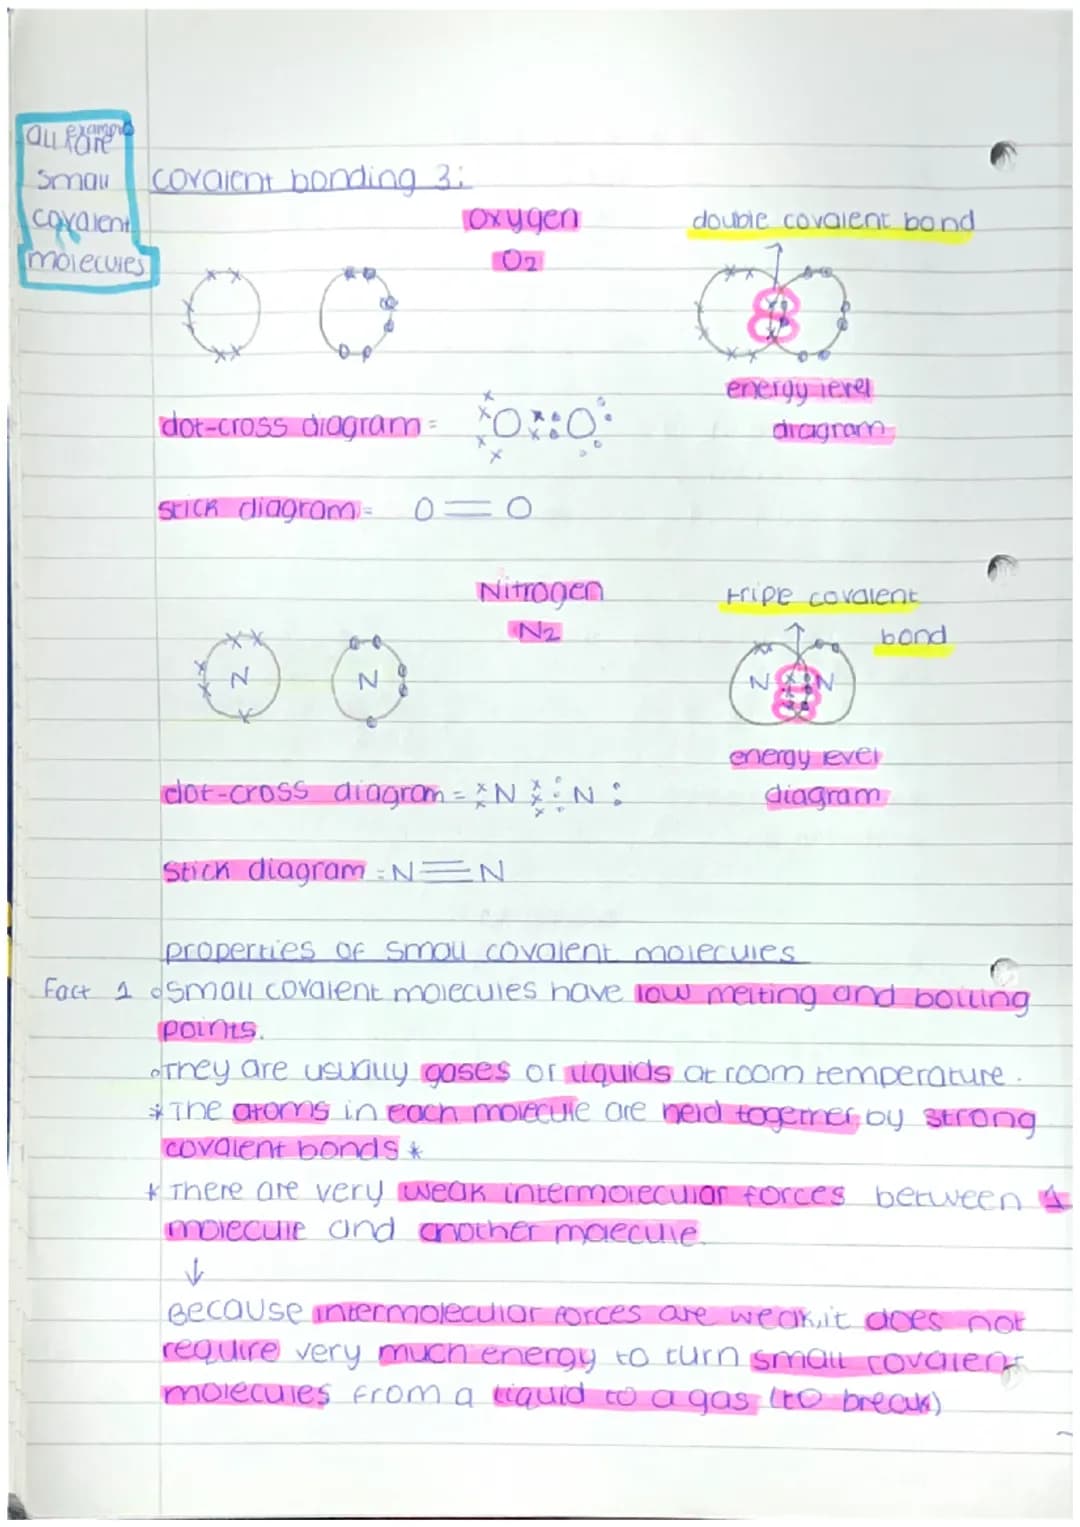 all examples
are
small
covalent
molecules
covalent bonding 3:
oxygen
O2
double covalent bond
energy level
diagram
dot-cross diagram = O O
stick diagram = O=O
Nitrogen
N2
triple covalent
bond
N N
N N
energy level
diagram
dot-cross diagram = N N
stick diagram = N≡N
properties of small covalent molecules
Fact 1 Small covalent molecules have low melting and boiling
points.
They are usually gases or liquids at room temperature.
* The atoms in each molecule are held together by strong
covalent bonds *
* There are very weak intermolecular forces between 1
molecule and another maecule.
↓
Because intermolecular forces are weak, it does not
require very much energy to turn small covalent
molecules from a liquid to a gas (to break)